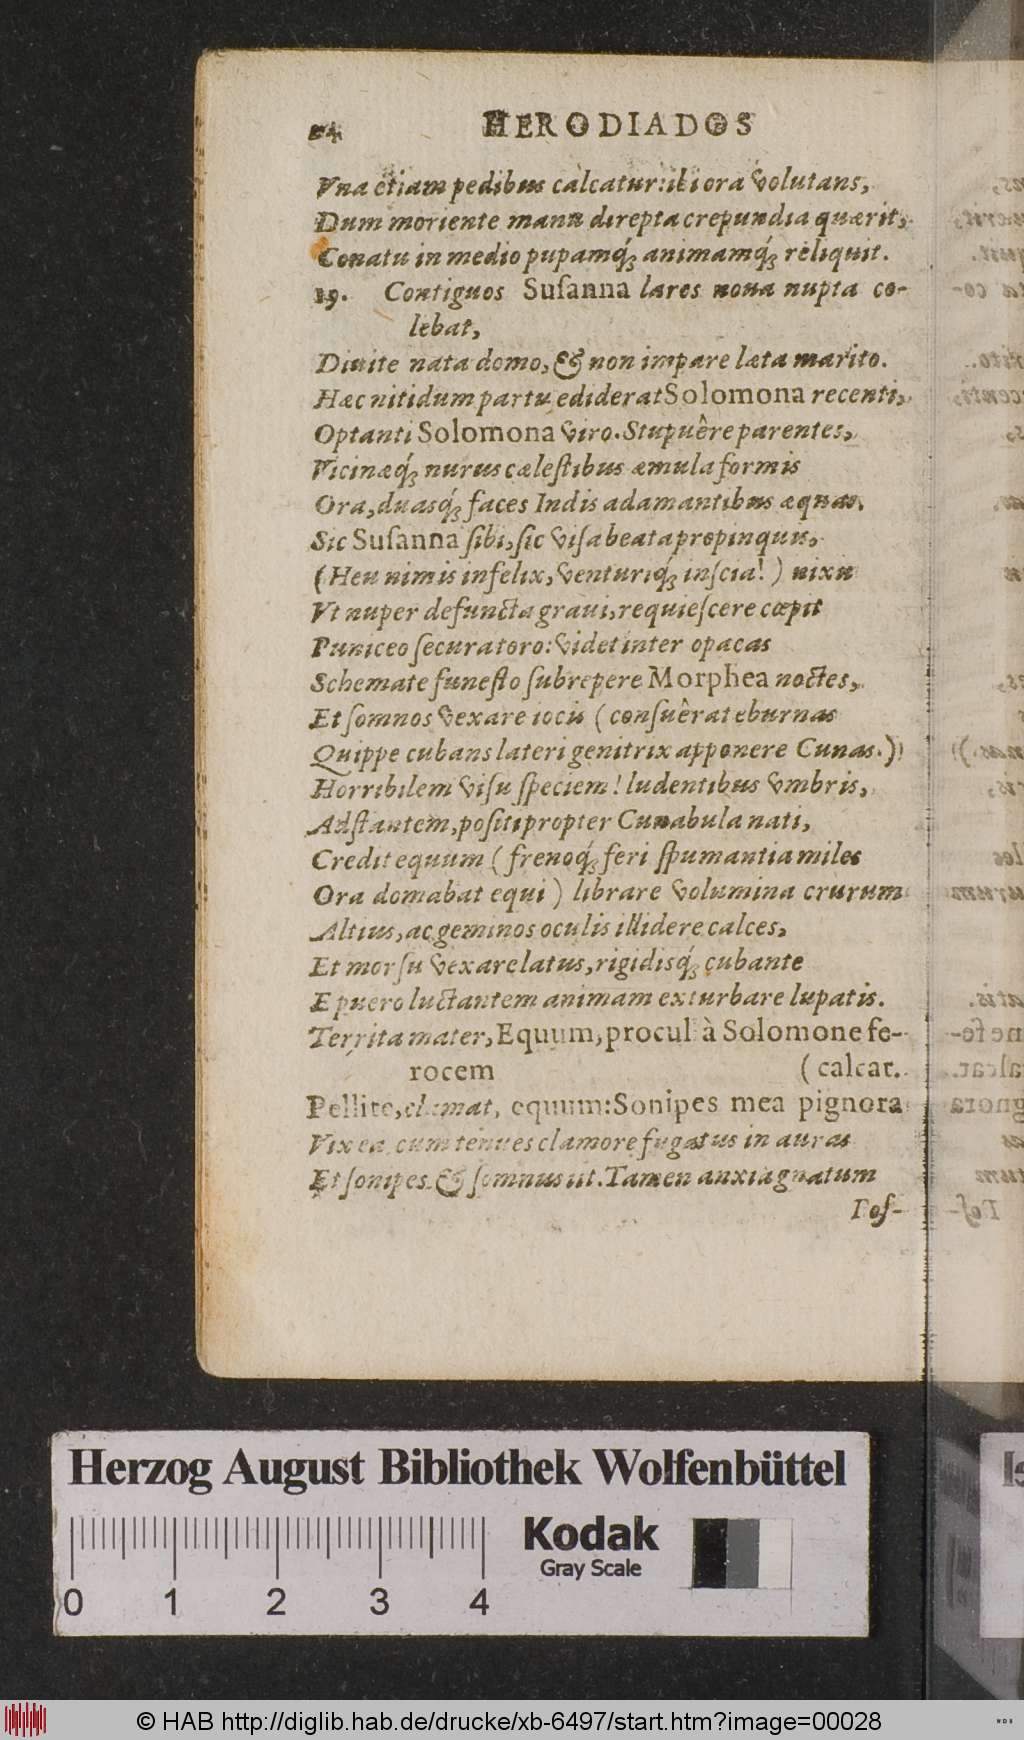 24 HERODIADOS
Vna etiam pedibus calcatur: ibi ora volutans,
Dum moriente manu direpta crepundia quærit,
Conatu in medio pupamq́; animamq́; reliquit.
19. Contiguos Suſanna lares noua nupta co-
lebat,
Diuite nata domo, & non impare læta marito.
Hæc nitidum partu ediderat Solomona recenti,
Optanti Solomona viro. Stupuêre parentes,
Vicinæq́; nurus cæleſtibus æmula formis
Ora, duasq́; faces Indis adamantibus æquas.
Sic Suſanna ſibi, ſic viſa beata propinquis,
(Heu nimis infelix, venturiq́; inſcia!) nixu
Vt nuper defuncta graui, requieſcere cœpit
Puniceo ſecura toro: videt inter opacas
Schemate funeſto ſubrepere Morphea noctes,
Et ſomnos vexare iocis (conſuêrat eburnas
Quippe cubans lateri genitrix apponere Cunas.)
Horribilem viſu ſpeciem! ludentibus vmbris,
Adſtantem, poſiti propter Cunabula nati,
Credit equum (frenoq́; feri ſpumantia miles
Ora domabat equi) librare volumina crurum
Altius, ac geminos oculis illidere calces,
Et morſu vexare latus, rigidisq́; cubante
E puero luctantem animam exturbare lupatis.
Territa mater, Equum, procul à Solomone fe-
rocem (calcat.
Pellite, clamat, equum: Sonipes mea pignora
Vix ea, cum tenues clamore fugatus in auras
Et ſonipes & ſomnus iit. Tamen anxia gnatum
Poſ-
Herzog August Bibliothek Wolfenbüttel
Kodak
Gray Scale
0 1 2 3 4
© HAB http://diglib.hab.de/drucke/xb-6497/start.htm?image=00028